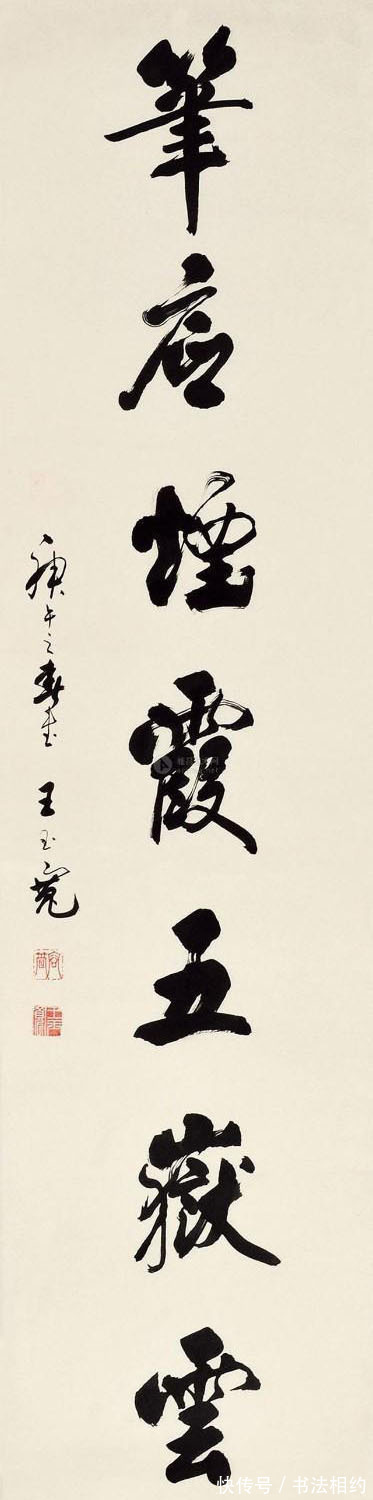 筆底煙霞五嶽雲
庚午之春書 王玉寬
快传号 / 书法相约